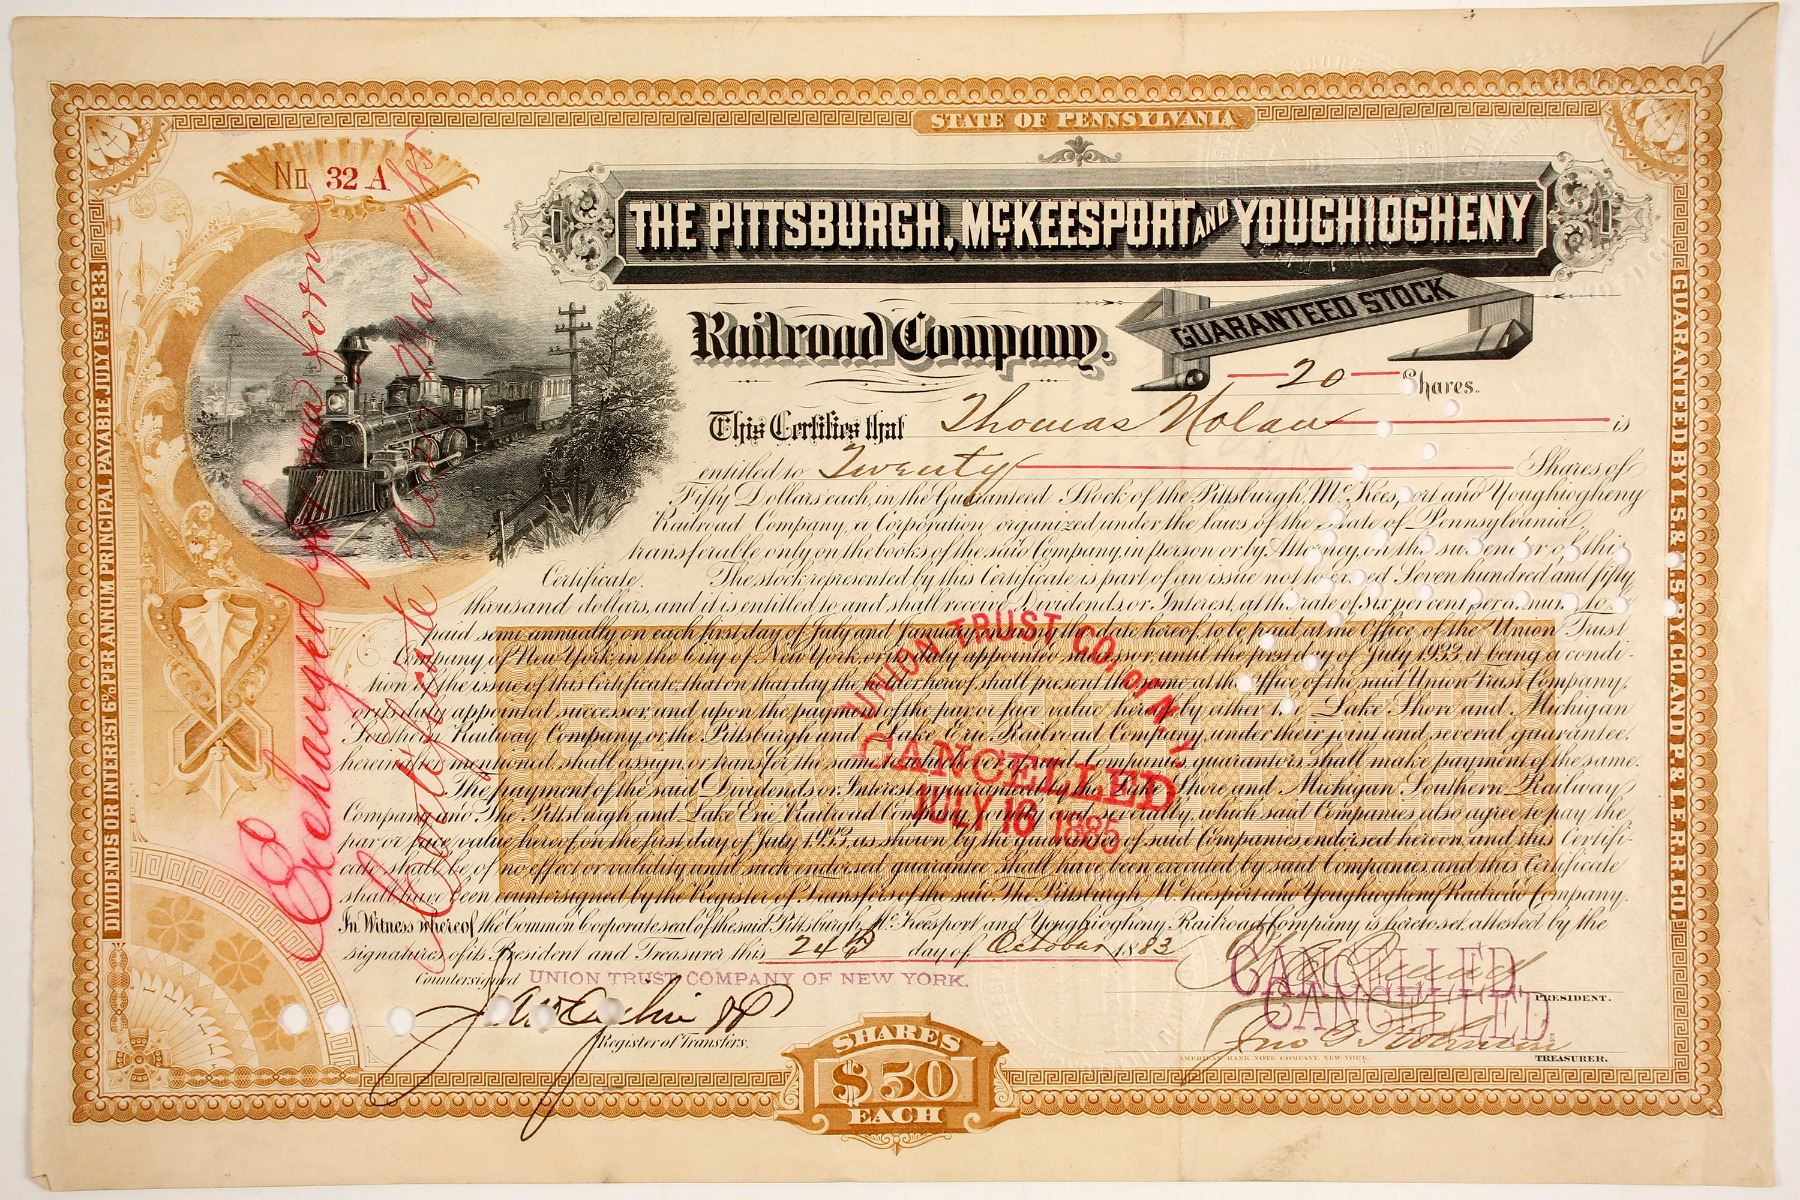 STATE OF PENNSYLVANIA
No 32 A
THE PITTSBURGH, McKEESPORT AND YOUGHIOGHENY
Railroad Company.
GUARANTEED STOCK
20 Shares.
This Certifies that Thomas Nolan is
entitled to Twenty Shares of
Fifty Dollars each, in the Guaranteed Stock of the Pittsburgh, McKeesport and Youghiogheny
Railroad Company, a Corporation organized under the laws of the State of Pennsylvania,
transferable only on the books of the said Company, in person or by Attorney, on the surrender of this
Certificate. The stock represented by this Certificate is part of an issue not to exceed Seven hundred and fifty
thousand dollars, and it is entitled to and shall receive Dividends or Interest, at the rate of Six per cent per annum, to be
paid semi annually on each first day of July and January, ensuing the date hereof, to be paid at the Office of the Union Trust
Company of New York, in the City of New York, or its duly appointed successor, until the first day of July 1933, it being a condi-
tion of the issue of this Certificate, that on that day the holder hereof shall present the same at the Office of the said Union Trust Company,
or its duly appointed successor, and upon the payment of the par or face value hereof by either the Lake Shore and Michigan
Southern Railway Company, or the Pittsburgh and Lake Erie Railroad Company, under their joint and several guarantee,
hereinafter mentioned, shall assign or transfer the same to whichever of said Companies guarantors shall make payment of the same.
The payment of the said Dividends or Interest is guaranteed by the Lake Shore and Michigan Southern Railway
Company and The Pittsburgh and Lake Erie Railroad Company, jointly and severally, which said Companies also agree to pay the
par or face value hereof, on the first day of July 1933, as shown by the guarantee of said Companies endorsed hereon, and this Certifi-
cate shall be of no effect or validity until such endorsed guarantee shall have been executed by said Companies, and this Certificate
shall have been countersigned by the Register of Transfers of the said The Pittsburgh, McKeesport and Youghiogheny Railroad Company.
In Witness whereof the Common Corporate seal of the said Pittsburgh, McKeesport and Youghiogheny Railroad Company is hereto set, attested by the
signatures of its President and Treasurer this 24th day of October 1883
Countersigned UNION TRUST COMPANY OF NEW YORK.
Register of Transfers.
PRESIDENT.
TREASURER.
AMERICAN BANK NOTE COMPANY, NEW YORK.
SHARES
$50
EACH
DIVIDENDS OR INTEREST 6% PER ANNUM PRINCIPAL PAYABLE JULY 1ST 1933.
GUARANTEED BY L.S. & M.S. RY. CO. AND P. & L.E. R.R. CO.
UNION TRUST CO. OF N.Y.
CANCELLED
JULY 16 1885
CANCELLED
CANCELLED.
Exchanged for new form
Certificate